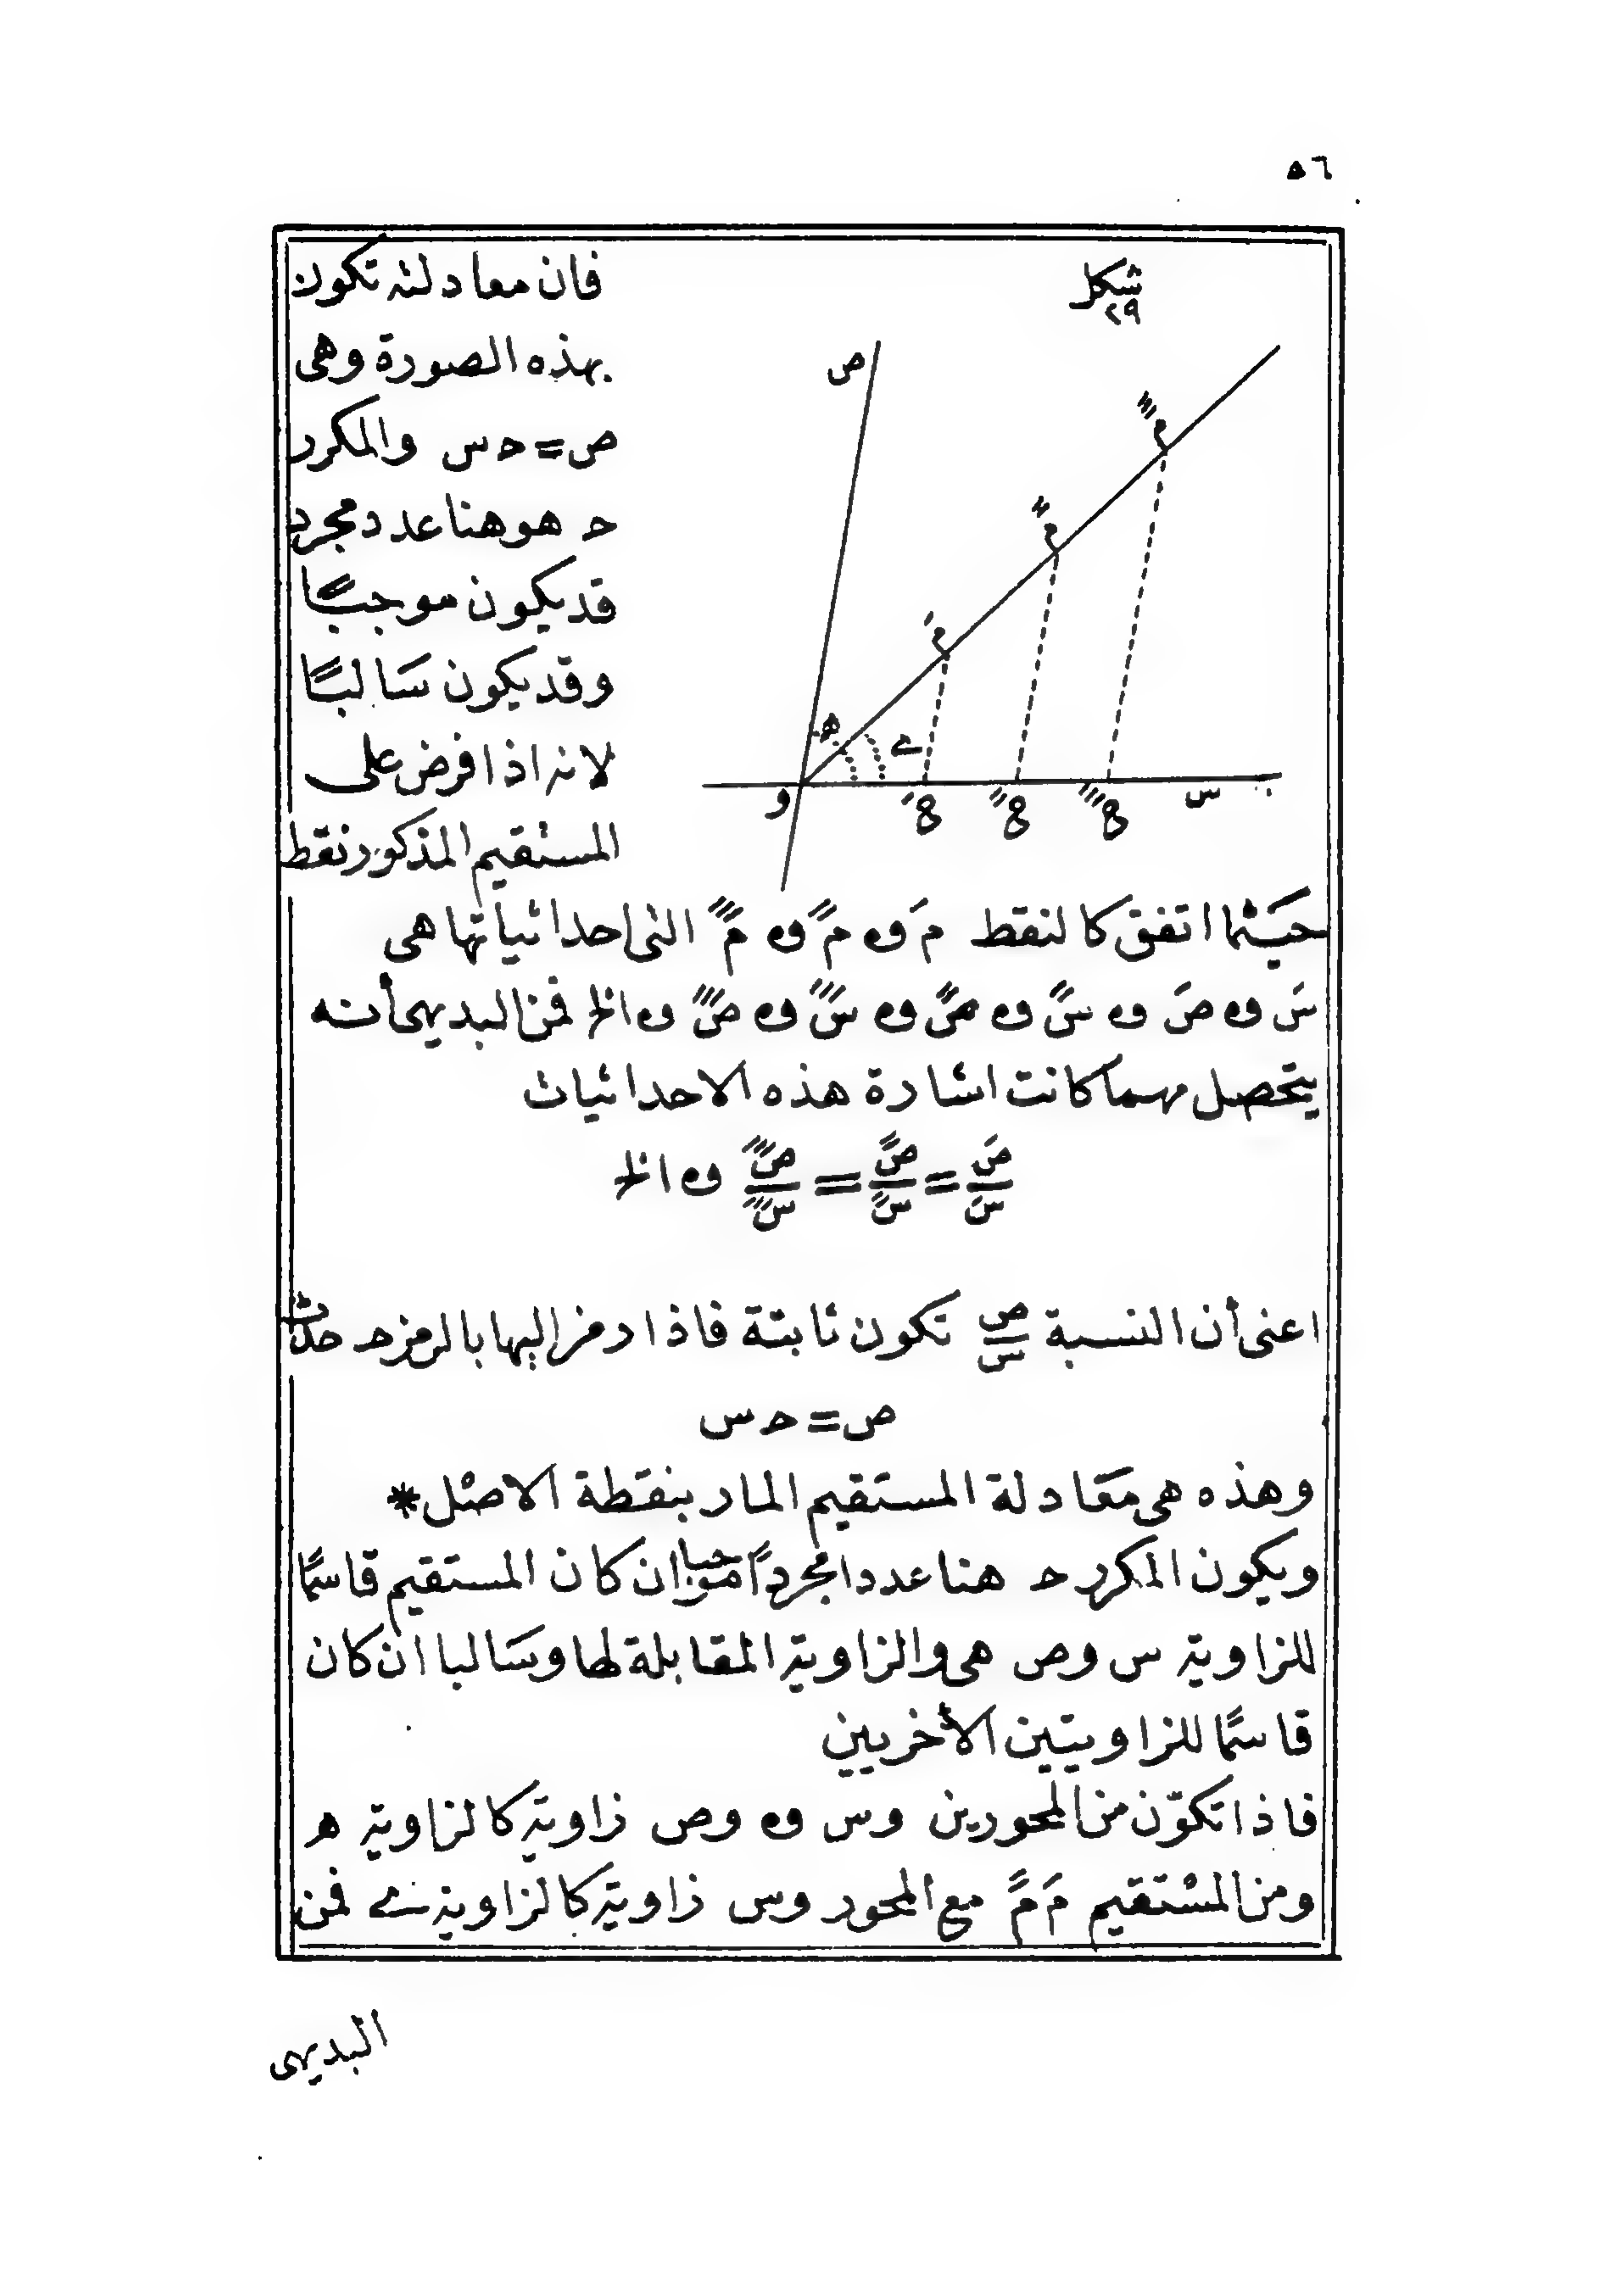 ٥٦
شكل
٢٩
ص
م‴
م″
م′
ه
ے
و
ع′
ع″
ع‴
س
فان معادلته تكون
بهذه الصورة وهى
ص = حـ س والمكرر
حـ هو هنا عدد مجرد
قد يكون موجبًا
وقد يكون سَالبًا
لانه اذا فرض على
المستقيم المذكور نقط
حيَثما اتفق كالنقط م′ و م″ و م‴ التى احداثياتها هى
س′ و ص′ و س″ و ص″ و س‴ و ص‴ و الخ فمن البديهى أنه
يتحصل مهما كانت اشارة هذه الاحداثيات
ص′/س′ = ص″/س″ = ص‴/س‴ و الخ
اعنى أن النسبة ص/س تكون ثابتة فاذا رمز اليها بالرمز حـ حدث
ص = حـ س
وهذه هى مَعَادلة المستَقيم المار بنقطة الاصل*
ويكون المكرر حـ هنا عددا مجردًا موجبا ان كان المستقيم قاسمًا
للزاوية س وص هى والزاوية المقابلة لها وسَالبا ان كان
قاسمًا للزاويتين الأخريين
فاذا تكوّن من المحورين وس و وص زاوية كالزاوية ه
ومن المستقيم م′ م″ مع المحور وس زاوية كالزاوية ے فمن
البديهى